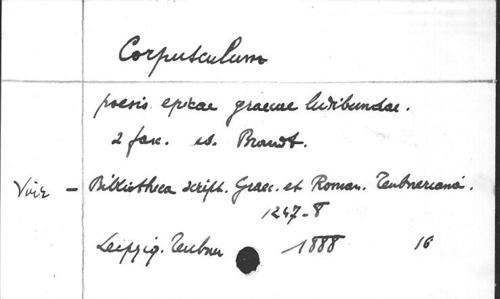 Corpusculum
poesis epicae graecae ludibundae.
2 fasc. ed. Brandt.
Voir - Bibliotheca script. Graec. et Roman. Teubneriana.
1247-8
Leipzig. Teubner 1888 16